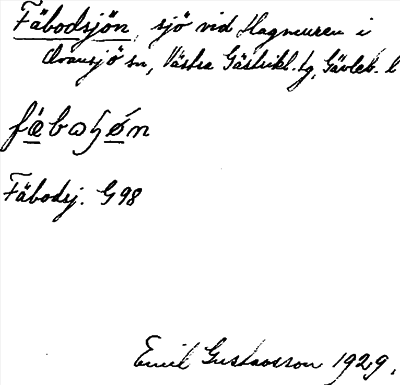 Fäbodsjön, sjö vid Hagmuren i
Ovansjö sn, Västra Gästrikl. tg, Gävleb. l
Fäbodsj. G 98
Emil Gustavsson 1929.